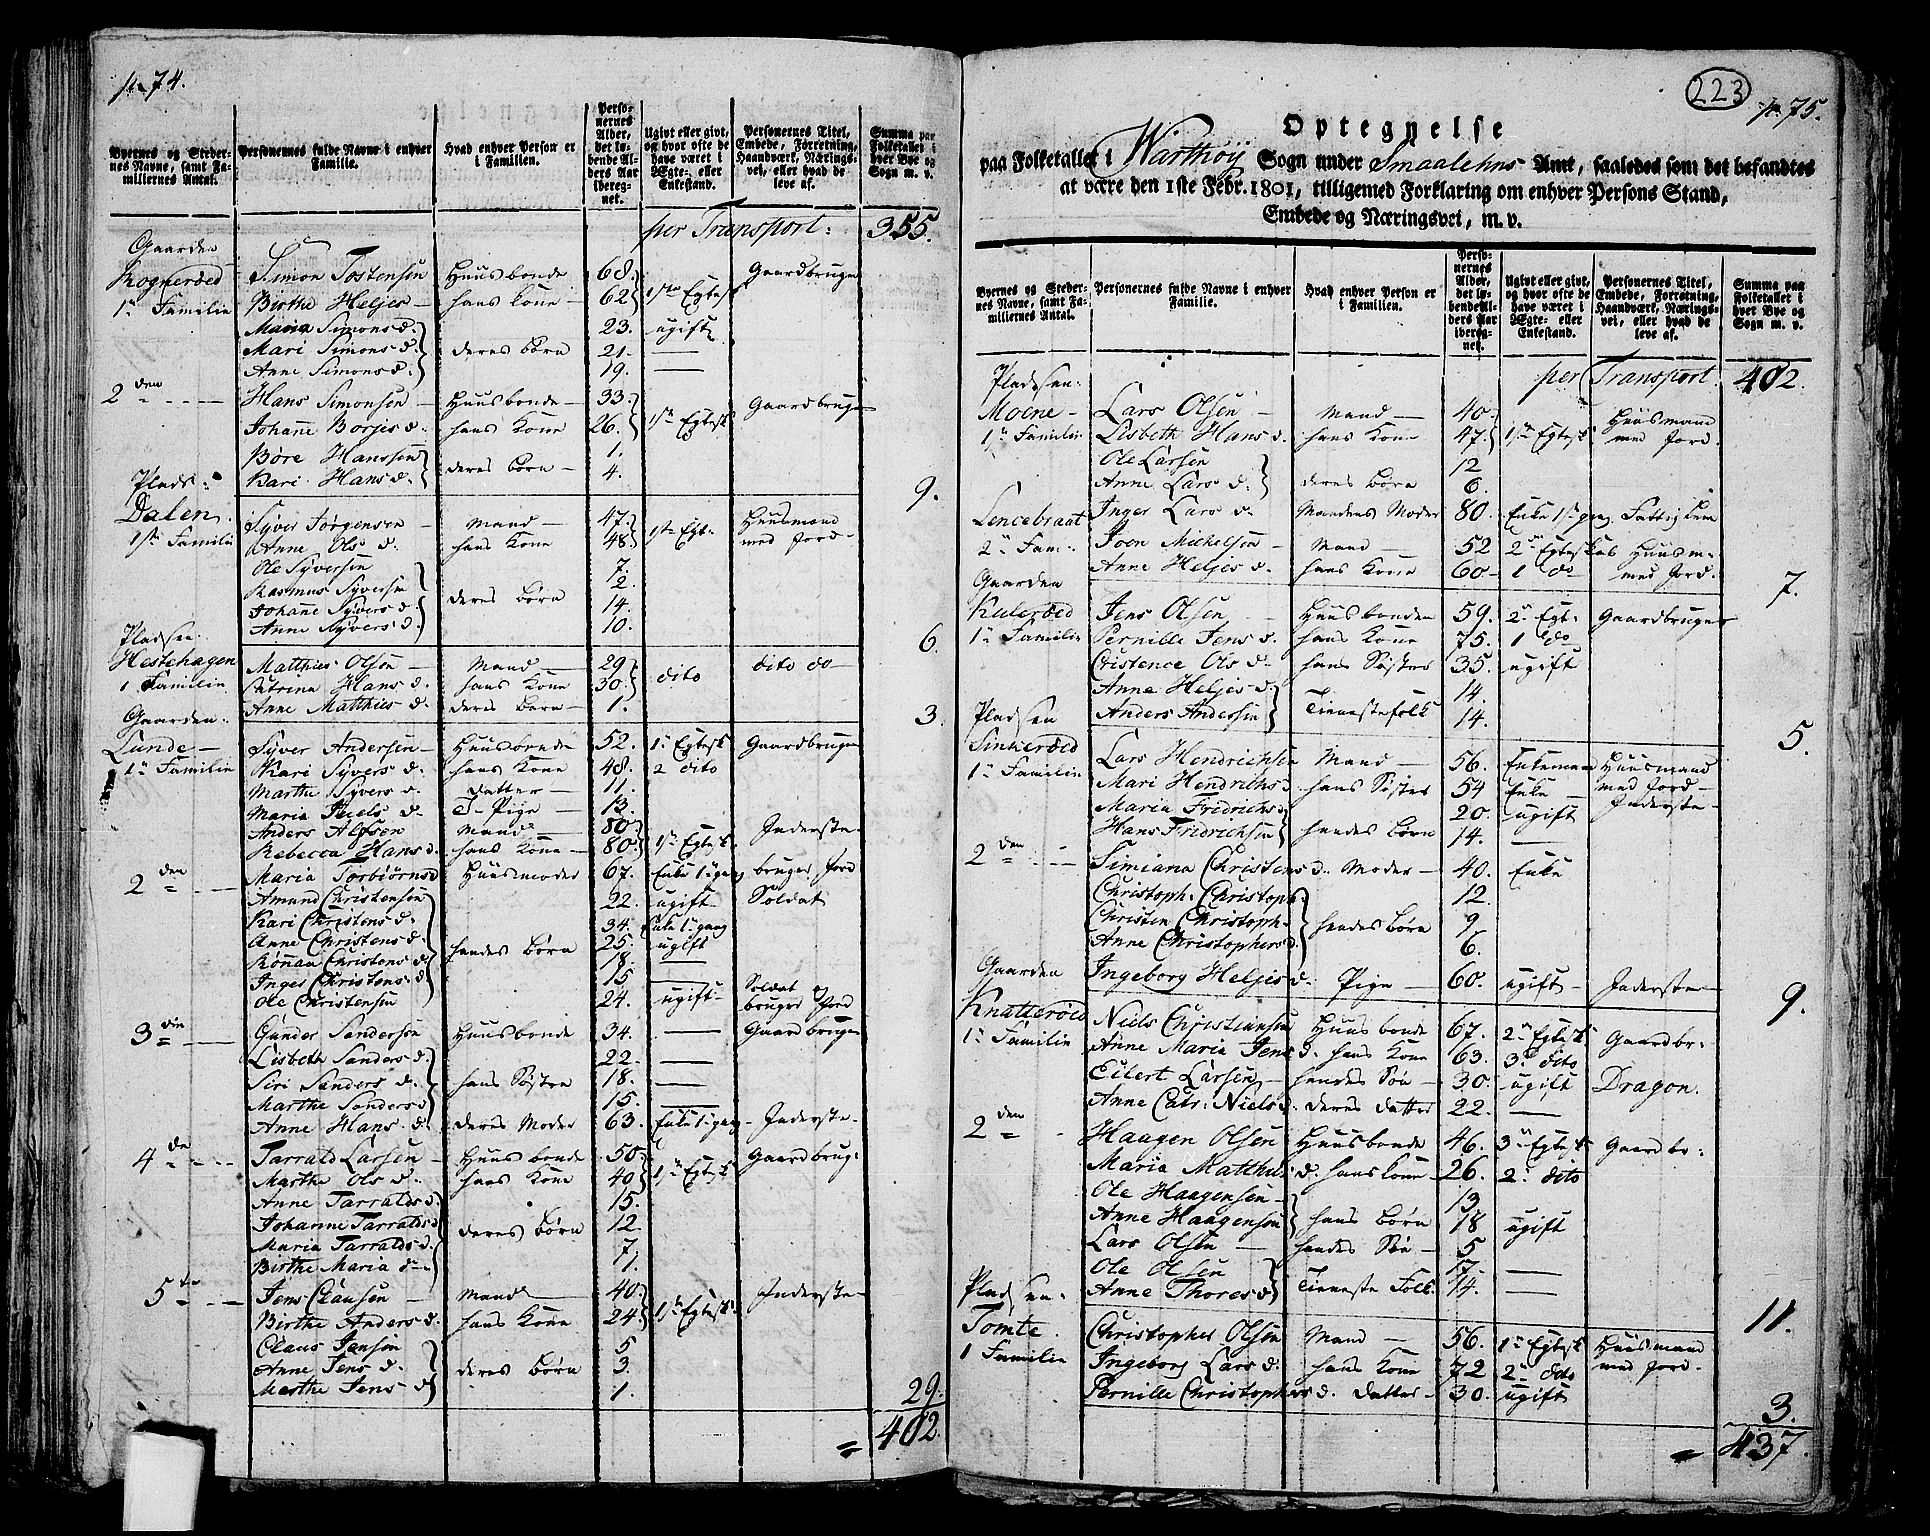 p. 74.
Byernes og Stedernes Navne, samt Familiernes Antal.
Personernes fulde Navne i enhver Familie.
Hvad enhver Person er i Familien.
Personernes Alder, det løbende Alders Aar iberegnet.
Ugivt eller givt, og hvor ofte de have været i Ægte- eller Enkestand.
Personernes Titel, Embede, Forretning, Haandværk, Næringsvei, eller hvad de leve af.
Summa paa Folketallet i hver Bye og Sogn m. v.
per Transport: 355.
Gaarden
Rognerød Simon Tostensen Huusbonde 68 Gaardbruger
1te Familie Birthe Heljes - hans Kone 62 1ste Egtesk
Maria Simons d. 23. ugift
Mari Simons d. deres børn 21. —
Anne Simons d. 19. —
2den Hans Simonsen - Huusbonde - 33. Gaardbruger
Johane Borjes d. hans Kone 26. 1ste Egtesk
Børe Hanssen 1.
Kari Hans d. deres børn - 4. 9.
Plads:
Dalen. Syver Jørgensen - Mand - 47. 1ste Egt: Huusmand
1ste Familie Anne Ols d. hans Kone 48 med Jord
Ole Syversen 7.
Rasmus Syversen 2
Johane Syvers d. deres børn 14.
Anne Syvers d. 10. 6.
Pladsen
Hestehagen Matthies Olsen - Mand - 29 dito dito do
1 Familie Catrina Hans d. hans Kone 30.
Anne Matthies d. deres Barn - 1. 3.
Gaarden
Lunde - Syver Andersen - Huusbonde 52. 1te Egtesk Gaardbruger
1te Familie Kari Syvers d. hans Kone 48. 2 dito
Marthe Syvers d. datter 11.
Maria Niels d. T. Pige 13.
Anders Alfsen Mand 80 Inderste
Rebecca Hans d. hans Kone - 80. 1ste Egtesk
2den Maria Torbiørns d Huusmoder 67. Enke 1 gang bruger Jord
Amund Christensen 22. ugift Soldat
Kari Christens d. 34. Enke 1 gang
Anne Christens d. hendes børn 25. ugift
Rönau Christens d. 18. —
Inger Christens d. 15 —
Ole Christensen 24. ugift Soldat og bruger Jord
3die Gunder Sandersen Huusbonde 34. — Gaardbruger
Lisbeth Sanders d. 22. —
Siri Sanders d. hans Søstre 18. —
Marthe Sanders d 15. —
Anne Hans d. deres Moder 63. Enke 1 gang Inderste
4de Tarrald Larsen - Huusbonde 50. Gaardbrug:
Marthe Ols d. hans Kone 40 1te Egtesk
Anne Tarralds d 15.
Johanne Tarralds d deres Børn 12.
Maria Tarralds d. 7
Birthe Maria d 1.
5te Jens Clausen Mand 40. Inderste
Birthe Anders d. hans Kone 24. 1te Egtesk
Claus Jensen 5
Anne Jens d. deres børn 3.
Marthe Jens d 1. 29.
= 402
223
p. 75.
Optegnelse
paa Folketallet i Warthøy Sogn under Smaalehns Amt, saaledes som det befandtes
at være den 1ste Febr. 1801, tilligemed Forklaring om enhver Persons Stand,
Embede og Næringsvei, m. v.
Byernes og Stedernes Navne, samt Familiernes Antal.
Personernes fulde Navne i enhver Familie.
Hvad enhver Person er i Familien.
Personernes Alder, det løbende Alders Aar iberegnet.
Ugivt eller givt, og hvor ofte de have været i Ægte- eller Enkestand.
Personernes Titel, Embede, Forretning, Haandværk, Næringsvei, eller hvad de leve af.
Summa paa Folketallet i hver Bye og Sogn m. v.
Pladsen per Transport 402.
Moene - Lars Olsen - Mand 40. Huusmand
1te Familie Lisbeth Hans d. hans Kone 47. 1te Egtesk med Jord
Ole Larsen 12
Anne Lars d. deres børn 6.
Lencebraat Inger Lars d. Mandens Moder 80. Enke 1ste gang Fattig Lem
2. Fam: Joen Michelsen - Mand 52 2den Egteskab Huusm:
Anne Heljes d. hans Kone 60 - 1 do med Jord. 7.
Gaarden
Kulerød Jens Olsen - Huusbonden 59. 2 Egt: Gaardbruger
1te Familie Pernille Jens d. hans Kone 75. 1 do
Cristence Ols d. hans Søster 35. ugift
Anne Heljes d. 14.
Anders Andersen Tienestefolk 14. 5.
Pladsen
Sinkerød Lars Hendrichsen Mand 56. Enkemand Huusmand
1te Familie Mari Hendrichs d hans Søster 54 Enke med Jord
Maria Fridrichs d 20. ugift Inderste
Hans Fridrichsen hendes Børn 14. —
2den Simiana Christens d. Moder - 40. Enke
Christoph: Christoph: 12.
Christen Christoph - hendes Børn 9
Anne Christophers d. 6.
Ingeborg Heljes d. Pige 60. ugift Inderste 9.
Gaarden
Knatterød Niels Christiansen Huusbonde 67. 2den Egtesk Gaardbr:
1te Familie Anne Maria Jens d. hans Kone 63. 3. dito
Eilert Larsen - hendes Søn - 30. ugift Dragon.
Anne Catr: Niels d. deres datter 22. —
2den Haagen Olsen Huusbonde 46. 3de Egtesk Gaardbr:
Maria Matthis d. hans Kone 26. 2. dito
Ole Haagensen - 13
Anne Haagensen hans børn 18 ugift
Lars Olsen - hendes Søn - 5
Ole Olsen 17. —
Anne Thores d Tieneste Folk 14. — 11.
Pladsen:
Tomte. Christopher Olsen Mand - 56. 1te Egtesk Huusmand
1 Familie Ingeborg Lars d. hans Kone 72 2. dito med Jord.
Pernille Christophers d. datter 30. ugift 3.
= 437.